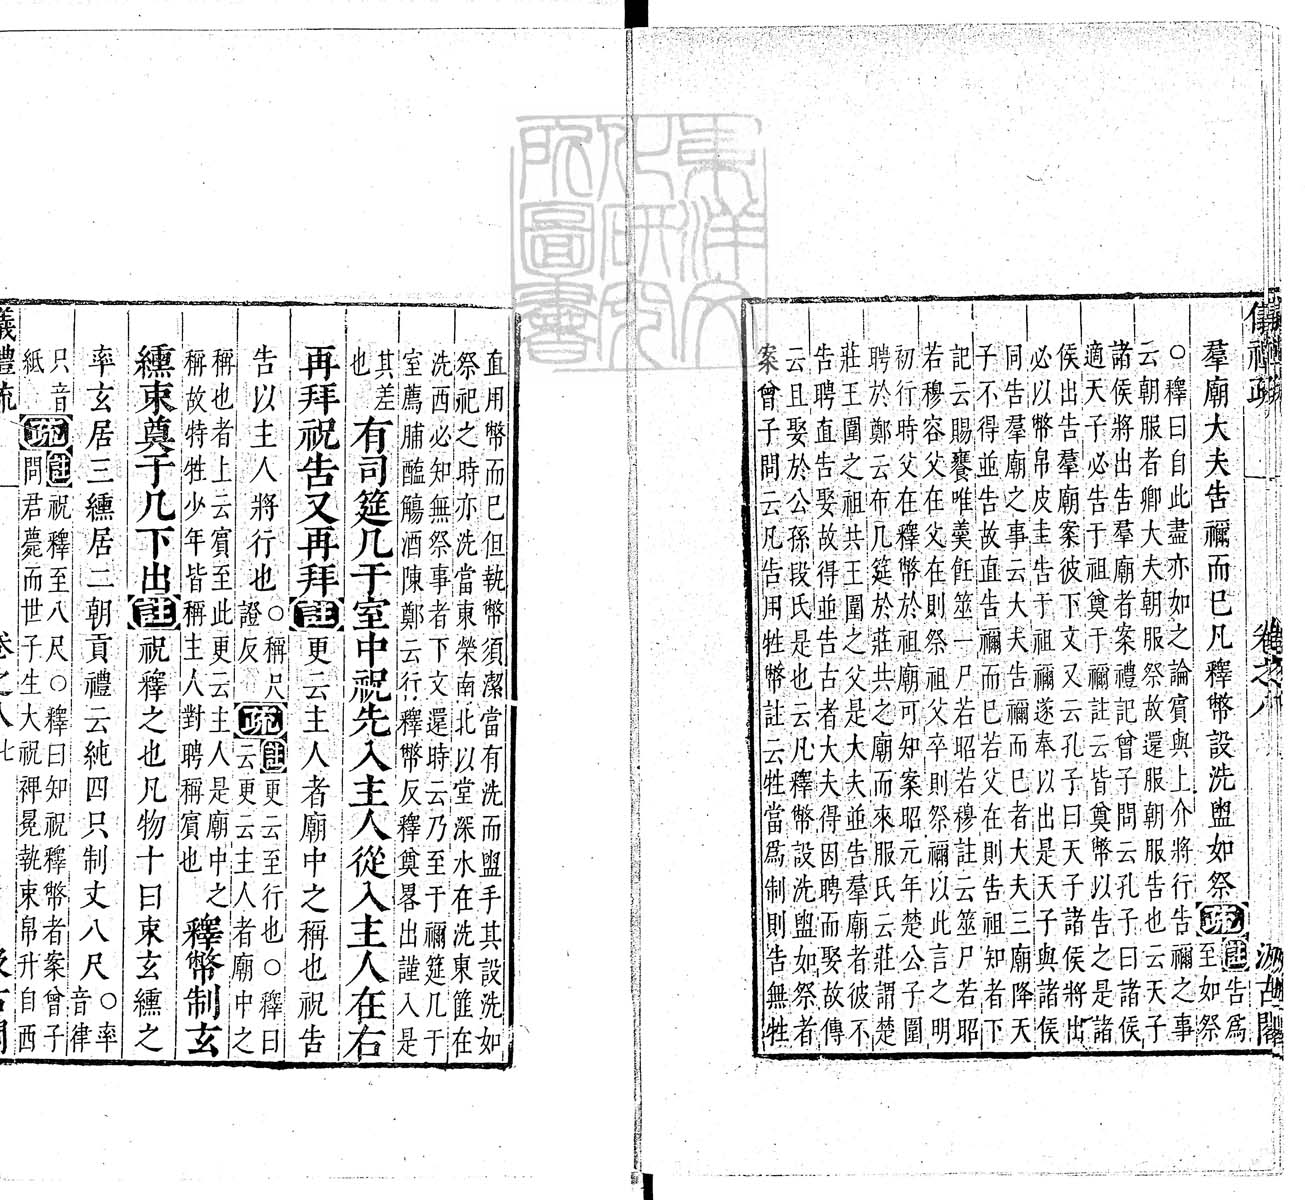 儀禮疏 卷之八 汲古閣
羣廟大夫告禰而已凡釋幣設洗盥如祭 疏 註告爲
至如祭
〇釋曰自此盡亦如之論賓與上介將行告禰之事
云朝服者卿大夫朝服祭故還服朝服告也云天子
諸侯將出告羣廟者案禮記曾子問云孔子曰諸侯
適天子必告于祖奠于禰註云皆奠幣以告之是諸
侯出告羣廟案彼下文又云孔子曰天子諸侯將出
必以幣帛皮圭告于祖禰遂奉以出是天子與諸侯
同告羣廟之事云大夫告禰而已者大夫三廟降天
子不得並告故直告禰而已若父在則告祖知者下
記云賜饔唯羹飪筮一尸若昭若穆註云筮尸若昭
若穆容父在父在則祭祖父卒則祭禰以此言之明
初行時父在釋幣於祖廟可知案昭元年楚公子圍
聘於鄭云布几筵於莊共之廟而來服氏云莊謂楚
莊王圍之祖共王圍之父是大夫並告羣廟者彼不
告聘直告娶故得並告古者大夫得因聘而娶故傳
云且娶於公孫段氏是也云凡釋幣設洗盥如祭者
案曾子問云凡告用牲幣註云牲當爲制則告無牲
直用幣而已但執幣須潔當有洗而盥手其設洗如
祭祀之時亦洗當東榮南北以堂深水在洗東篚在
洗西必知無祭事者下文還時云乃至于禰筵几于
室薦脯醢觴酒陳鄭云行釋幣反釋奠畧出謹入是
其差
也
有司筵几于室中祝先入主人從入主人在右
再拜祝告又再拜 註 更云主人者廟中之稱也祝告
告以主人將行也 〇稱尺
證反 疏 註更云至行也〇釋曰
云更云主人者廟中之
稱也者上云賓至此更云主人是廟中之
稱故特牲少年皆稱主人對聘稱賓也
釋幣制玄
纁束奠于几下出 註 祝釋之也凡物十曰束玄纁之
率玄居三纁居二朝貢禮云純四只制丈八尺 〇率
音律
只音
紙 疏 註祝釋至八尺〇釋曰知祝釋幣者案曾子
問君薨而世子生大祝裨冕執束帛升自西
儀禮疏 卷之八 七 汲古閣
東洋文化研究所圖書